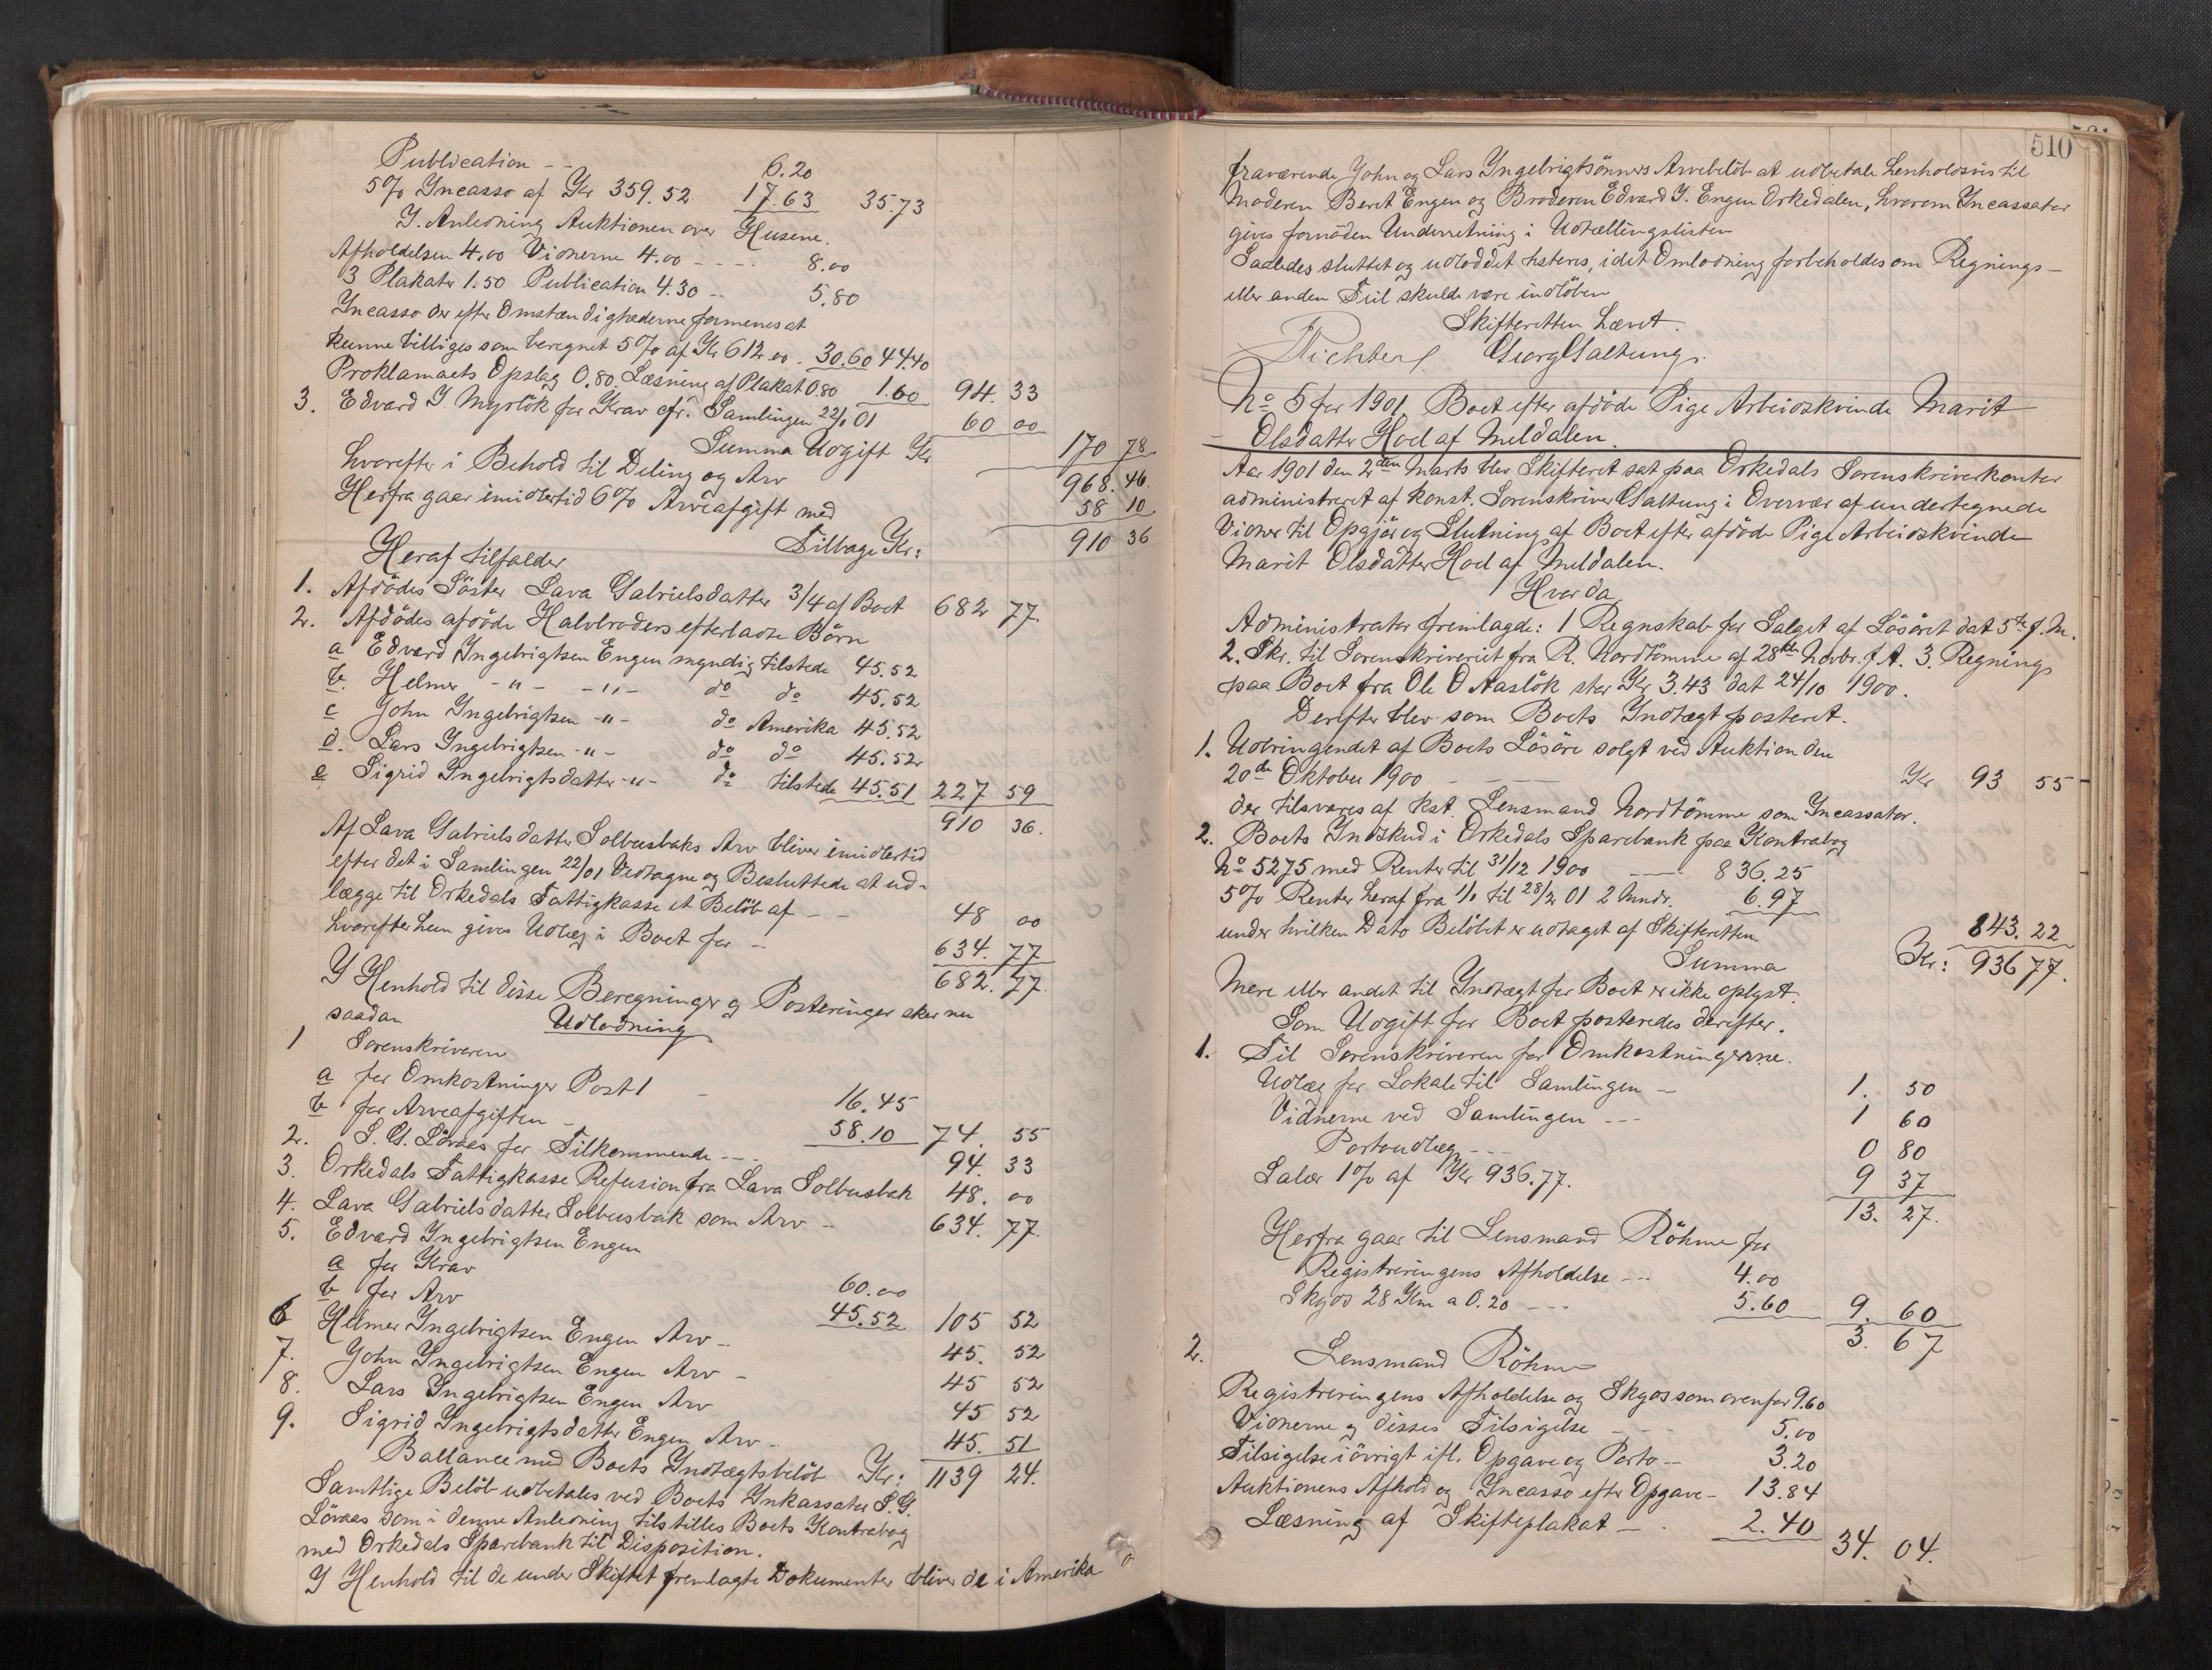 Publication -- 6.20
5% Incasso af Kr 359.52 17.63 35.73
I. Anledning Auktionen over Husene.
Afholdelsen 4.00 Vidnerne 4.00 ---- 8.00
3 Plakater 1.50 Publication 4.30 -- 5.80
Incasso der efter Omstændighederne formenes at
kunne billiges som beregnet 5% af Kr 612.00 . 30.60 44.40
Proklamaets Opslag 0.80. Læsning af Plakat 0.80 1.60 94. 33
3. Edvard I Myrlök for Krav cfr. Samlingen 22/1 01 60 00
Summa Udgift Kr 170 78
hvorefter i Behold til Deling og Arv 968. 46.
Herfra gaar imidlertid 6% Arveafgift med 58 10
Tilbage Kr: 910 36
Heraf tilfalder
1. Afdödes Söster Lava Gabrielsdatter 3/4 af Boet 682 77.
2. Afdödes afdöde Halvbroders efterladte Börn
a Edvard Ingebrigtsen Engen myndig tilstede 45.52
b. Helmer -"- -"- do do 45.52
c John Ingebrigtsen -"- do Amerika 45.52
d. Lars Ingebrigtsen -"- do do 45.52
e Sigrid Ingebrigtsdatter -"- do tilstede 45.51 227 59
910 36.
Af Lava Gabrielsdatter Solbusbaks Arv bliver imidlertid
efter det i Samlingen 22/1 01 Vedtagne og Besluttede at ud-
lægge til Orkedals Fattigkasse et Belöb af -- 48 00
hvorefter hun gives Udlæg i Boet for -- 634. 77
682. 77.
I Henhold til disse Beregninger og Posteringer sker nu
saadan Udlodning
1 Sorenskriveren
a for Omkostninger Post 1 - 16.45
b for Arveafgiften - 58.10 74. 55
2. S. G. Löraas for Tilkommende --- 94. 33
3. Orkedals Fattigkasse Refusion fra Lava Solbusbak 48. 00
4. Lava Gabrielsdatter Solbusbak som Arv -- 634. 77.
5. Edvard Ingebrigtsen Engen
a for Krav 60.00
b for Arv 45.52 105 52
6 Helmer Ingebrigtsen Engen Arv -- 45. 52
7. John Ingebrigtsen Engen Arv - 45 52
8. Lars Ingebrigtsen Engen Arv 45 52
9. Sigrid Ingebrigtsdatter Engen Arv - 45. 51
Ballance med Boets Indtægtsbelöb Kr: 1139 24.
Samtlige Belöb udbetales ved Boets Inkassator S. G.
Löraas som i denne Anledning tilstilles Boets Kontrabog
med Orkedals Sparebank til Disposition.
I Henhold til de under Skiftet fremlagte Dokumenter bliver de i Amerika
510
fraværende John og Lars Ingebrigtsönners Arvebelöb at udbetale henholdsvis til
Moderen Beret Engen og Broderen Edvard I. Engen Orkedalen, hvorom Incassator
gives fornöden Underretning i Udtællingslisten
Saaledes sluttet og udloddet hsteres, idet Omlodning forbeholdes om Regnings-
eller anden Feil skulde være indlöben
Skifteretten hævet.
Richter f. Georg Saltung f.
No 5 for 1901. Boet efter afdöde Pige Arbeidskvinde Marit
Olsdatter Hoel af Meldalen.
Aar 1901 den 2den Marts blev Skifteret sat paa Orkedals Sorenskriverkontor
administreret af konst. Sorenskriver Saltung i Overvær af undertegnede
Vidner til Opgjör og Slutning af Boet efter afdöde Pige Arbeidskvinde
Marit Olsdatter Hoel af Meldalen.
Hvor da
Administrator fremlagde: 1 Regnskab for Salget af Lösöret dat 5te f. M.
2. Skr. til Sorenskriveriet fra R. Nordtömme af 28de Novbr. f A. 3. Regnings
paa Boet fra Ole O Aaslök stor Kr 3.43 dat 24/10 1900.
Derefter blev som Boets Indtægt posteret.
1. Udbringendet af Boets Lösöre solgt ved Auktion den
20de Oktober 1900 - - --- Kr 93 55
der tilsvares af kst. Lensmand Nordtömme som Incassator.
2. Boets Indskud i Orkedals Sparebank paa Kontrabog
No 5275 med Renter til 31/12 1900 --- 836.25
5% Renter heraf fra 1/1 til 28/2 01 2 Mndr. 6.97
under hvilken Dato Belöbet er udtaget af Skifteretten. 843. 22
Summa Kr: 936 77.
Mere eller andet til Indtægt for Boet er ikke oplyst.
Som Udgift for Boet posteredes derefter.
1. Til Sorenskriveren for Omkostningerne.
Udlæg for Lokale til Samlingen - 1. 50
Vidnerne ved Samlingen --- 1 60
Portoudlæg --- 0 80
Salær 1% af Kr 936.77. 9 37
13. 27.
Herfra gaar til Lensmand Röhme for
Registreringens Afholdelse --- 4.00
Skyds 28 Km a 0.20 --- 5.60 9. 60
3. 67
2. Lensmand Röhme
Registreringens Afholdelse og Skyds som ovenfor 9.60
Vidnerne og disses Tilsigelse - - - 5.00
Tilsigelse i övrigt ifl. Opgave og Porto -- 3.20
Auktionens Afhold og Incasso efter Opgave - 13.84
Læsning af Skifteplakat - . 2.40 34. 04.